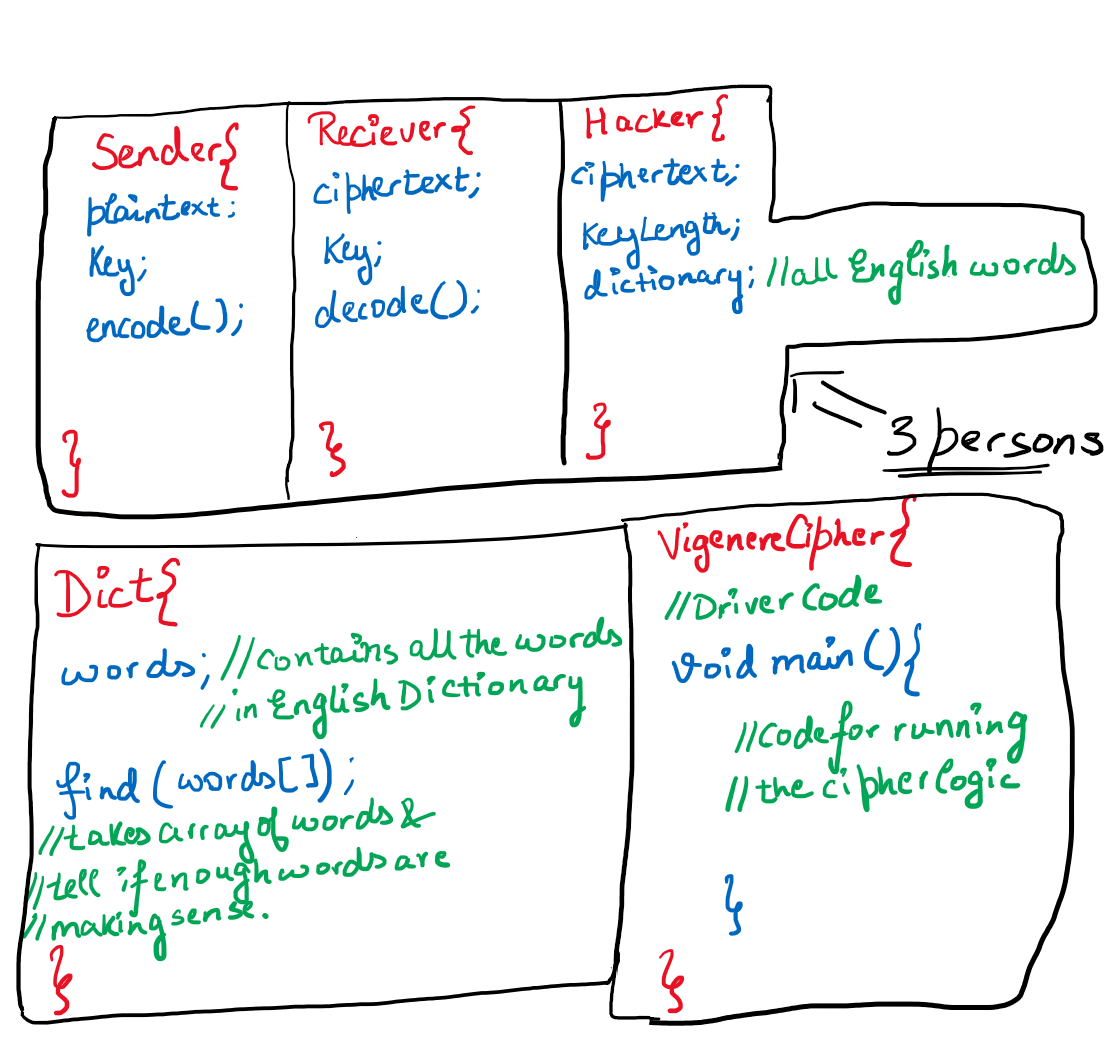 Sender{
plaintext;
Key;
encode();
}
Reciever{
ciphertext;
Key;
decode();
}
Hacker{
ciphertext;
KeyLength;
dictionary; //all English words
}
3 persons
Dict{
words; //contains all the words
// in English Dictionary
find(words[]);
//takes array of words &
//tell if enough words are
//making sense.
}
VigenereCipher{
//Driver Code
void main(){
//Code for running
//the cipher logic
}
}